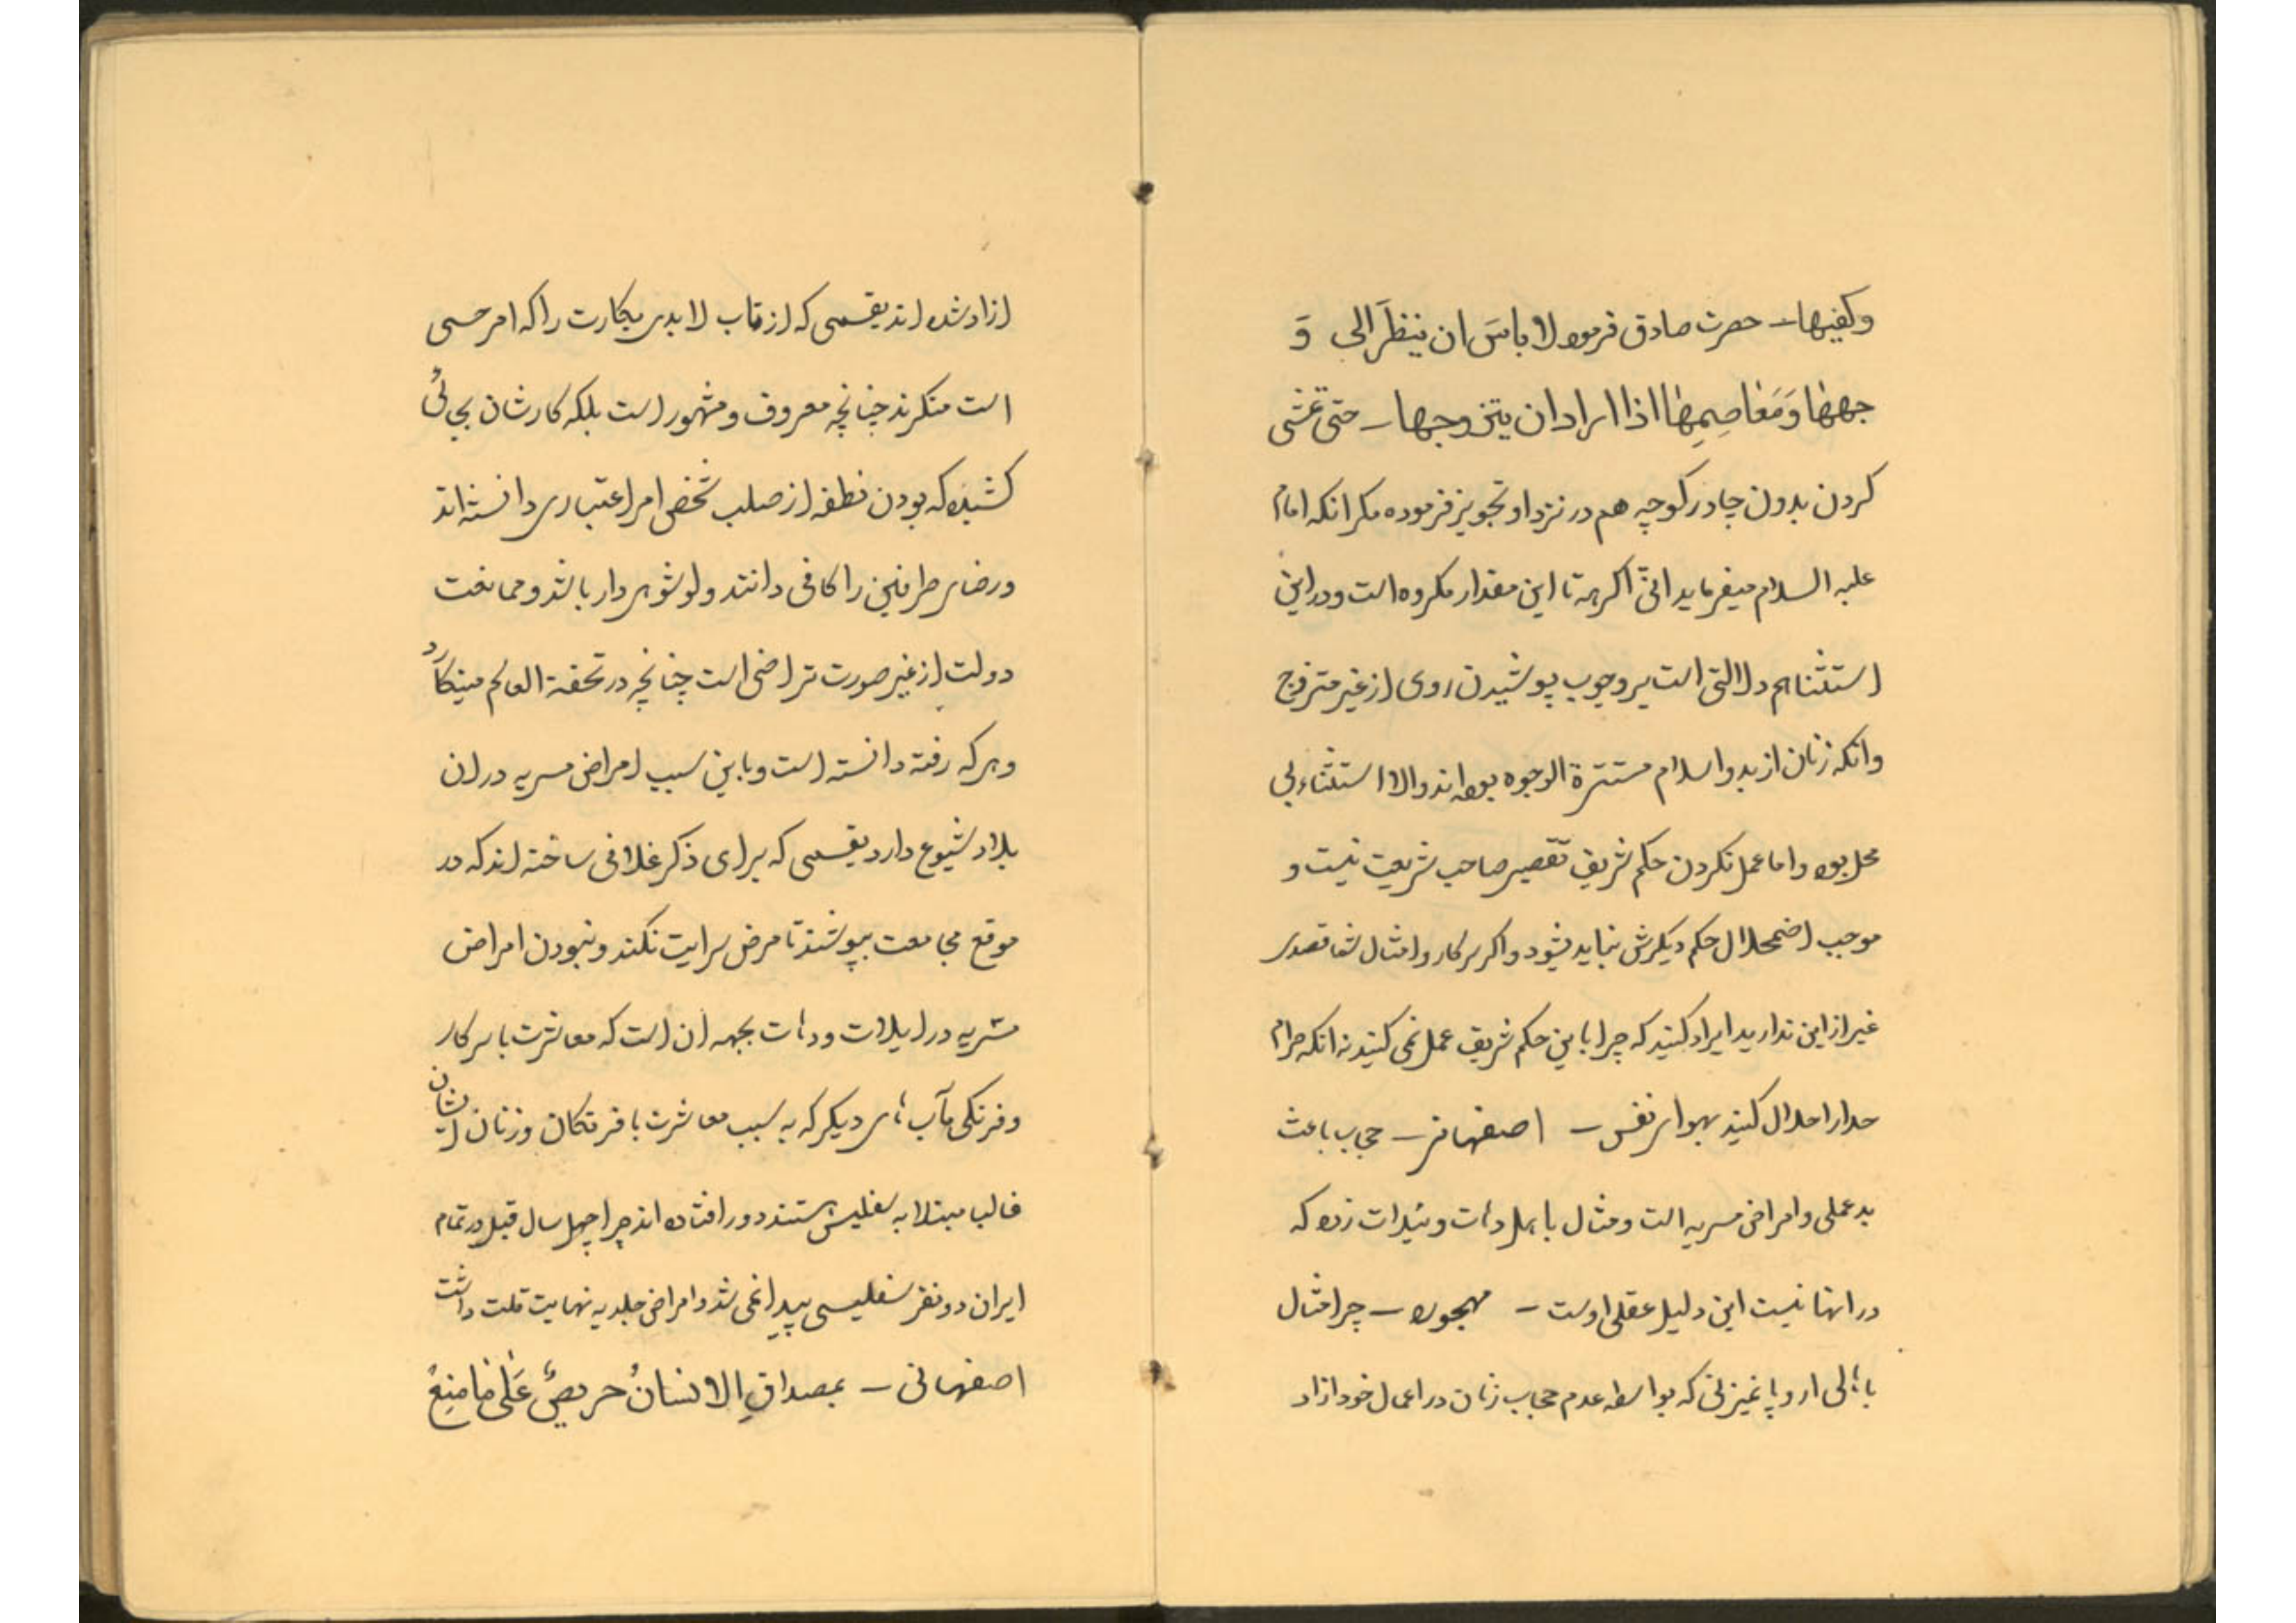 وکفیها – حضرت صادق فرموده لا باسَ ان ینظَرَ الی وَ
جهها وَمَعاصِمِها اذا اراد ان یتزوجها – حتی تمشی
کردن بدون چادر کوچه هم در نزد او تجویز فرموده مکر انکه امام
علیه السلام میفرماید انی اکره تا این مقدار مکروه است و در این
استثنا هم دلالتی است بر وجوب پوشیدن روی از غیر متزوج
وانکه زنان از بدو اسلام مستترة الوجوه بوده اند والا استثناء بی
محل بوده واما عمل نکردن حکم شریف تقصیر صاحب شریعت نیست و
موجب اضمحلال حکم دیکرش نباید بشود واکر سرکار وامثال شما قصدی
غیر از این ندارید ایراد کنید که چرا باین حکم شریف عمل نمی کنید نه انکه حرام
خدا را حلال کنید بهوای نفس – اصفهانی – حجاب باعث
بدعملی وامراض مسریه است ومثال باهل دهات وایلات زده که
در انها نیست این دلیل عقلی اوست – مهجور – چرا مثال
باهالی اروپا نمیزنی که بواسطه عدم حجاب زنان در اعمال خود ازاد
ازاد شده اند بقسمی که ارتیاب لابدی بکارت را که امر حسی
است منکرند چنانچه معروف ومشهور است بلکه کارشان بجائی
کشیده که بودن نطفه از صلب شخص امر اعتباری دانسته اند
ورضای طرفین را کافی دانند ولو شوهر دار باشد وممانعت
دولت از غیر صورت تراضی است چنانچه در تحفة العالم مینکارد
وهر که رفته دانسته است وباین سبب امراض مسریه در ان
بلاد شیوع دارد بقسمی که برای ذکر غلافی ساخته اند که در
موقع مجامعت بپوشند تا مرض سرایت نکند ونبودن امراض
مسریه در ایلات ودهات بجهه ان است که معاشرت با سرکار
وفرنکی مآب های دیکر که به سبب معاشرت با فرنکان وزنان ایشان
غالبا مبتلا به سفلیس هستند دور افتاده اند چرا چهل سال قبل در تمام
ایران دو نفر سفلیسی پیدا نمی شد وامراض جلدیه نهایت قلت داشت
اصفهانی – بمصداقِ الانسانُ حریصٌ عَلی ما مُنِعُ